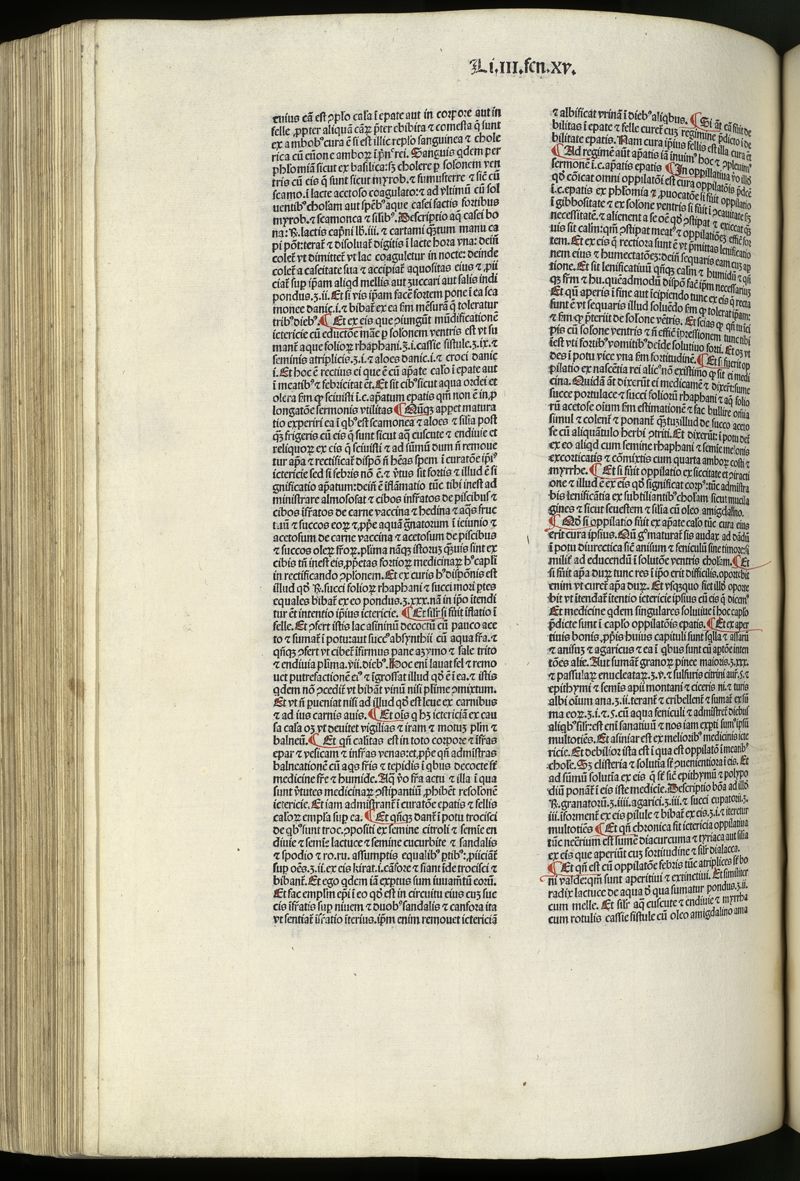 Li.III.fen.XV.
cuius cā est ɔplo casa ī epate aut in corpore aut īn
felle ,ppter aliquā eaꝝ p̄ter ebibita ⁊ comesta q̄ sunt
ex ambobꝰ cura ē si est illic replo sanguinea ⁊ chole
rica cū cūone amboꝝ ī pn̄ rei. Sanguis qdem per
phlomiā sicut ex basilica: sꝫ cholere ꝑ solonem ven
tris cū eis q̄ sunt sicut myrob. ⁊ sumusterre ⁊ sic cū
scamo. ī lacte acetoso coagulato: ⁊ ad vltimū cū sol
uentibꝰ cholam aut spēbꝰ aque casei factis fortibus
myrob. ⁊ scamonea ⁊ silibꝰ. Descriptio aq̄ casei bo
na: ℞. lactis capn̄i lb. iii. ⁊ cartami q̄ꝫtum manu ca
pi pōt: terat ⁊ disoluat digitis ī lacte hora vna: dein̄
colet vt dimittet vt lac coaguletur in nocte: deinde
colet a caseitate sua ⁊ accipiat aquositas eius ⁊ ,pii
ciat sup ip̄am aliqd mellis aut zuccari aut salis indi
pondus.ʒ.ii. Et si vis ip̄am facē fortem pone ī ea sca
monee danic.i. ⁊ bibat ex ea ẜm mēsurā q̄ toleratur
tribꝰ diebꝰ. ¶ Et ex eis que ɔiungūt mūdificationē
ictericie cū eductōe māe ꝑ solonem ventris est vt su
mant aque folioꝝ rhaphani.ʒ.i. cassie fistule.ʒ.ix. ⁊
seminis atriplicis.ʒ.i. ⁊ aloes danic.i. ⁊ croci danic
i. Et hoc ē rectius ei que ē cū apate calo ī epate aut
ī meatibꝰ ⁊ febricitat ēt. Et sit cibꝰ sicut aqua ordei et
olera ẜm ꝙ sciuisti ī.c. apatum epatis qm̄ non ē in ,p
longatōe sermonis vtilitas ¶ Nūqꝫ appet matura
tio experiri ea ī qbꝰ est scamonea ⁊ aloes ⁊ silia post
qꝫ frigeris cū eis q̄ sunt sicut aq̄ cuscute ⁊ endiuie et
reliquoꝝ ex eis q̄ sciuisti ⁊ ad sūmū dum n̄ remoue
tur apa ⁊ rectificat dispō n̄ hēas spem ī curatōe ip̄iꝰ
ictericie sed si febris nō ē. ⁊ v̓tus sit fortis ⁊ illud ē si
gnificatio apatum: dein̄ ē īflamatio tūc tibi inest ad
ministrare almososat ⁊ cibos īfratos de piscibus ⁊
cibos īfratos de carne vaccina ⁊ hedina ⁊ aqs fruc
tuū ⁊ succos eoꝝ ⁊ ,ppe aquā g̓natorum ī ieiunio ⁊
acetosum de carne vaccina ⁊ acetosum de piscibus
⁊ succos oleꝝ fr̄oꝝ. plīma nāqꝫ istoꝝ q̄ꝫuis sint ex
cibis tn̄ inest eis ,ppetas fortioꝝ medicinaꝝ hꝰ capli
in rectificando ɔplonem. Et ex curis hꝰ disponis est
illud qd̓ ℞. succi folioꝝ rhaphani ⁊ succi mori ptes
equales bibat ex eo pondus.ʒ.xxx. nā in ipō itendi
tur ēt intentio ip̄ius ictericie. ¶ Et silr si fuit īflatio ī
felle. Et ɔfert istis lac asininū decoctū cū pauco ace
to ⁊ sumat ī potu: aut succꝰ absynthii cū aqua fra. ⁊
qn̄qꝫ ɔfert vt cibet īfirmus pane azymo ⁊ sale trito
⁊ endiuia plīma.vii. diebꝰ. Hoc eni lauat fel ⁊ remo
uet putrefactionē eiꝰ ⁊ īgrossat illud qd̓ ē ī ea. ⁊ istis
qdem nō ɔcedit vt bibāt vinū nisi plime ɔmixtum.
Et vt n̄ pueniat nisi ad illud qd̓ est leue ex carnibus
⁊ ad ius carnis auis. ¶ Et ois q hꝫ ictericiā ex cau
sa casa oꝫ vt deuitet vigilias ⁊ iram ⁊ motuꝫ plm̄ ⁊
balneū. ¶ Et qn̄ caliditas est in toto corpore ⁊ īfras
epar ⁊ vesicam ⁊ infras venas: et ,ppe qn̄ admistras
balneationē cū aqs fris ⁊ tepidis ī qbus decocte st
medicine fr̄e ⁊ humide. Aq̄ v̓o fra actu ⁊ illa ī qua
sunt v̓tutes medicinaꝝ ɔstipantiū ,phibent resolonē
ictericie. Et iam admistrant ī curatōe epatis ⁊ fellis
calorꝫ empla sup ea. ¶ Et qn̄qꝫ dant ī potu trocisci
de qbꝰ sunt troc. ɔpositi ex semine citroli ⁊ semie en
diuie ⁊ semīe lactuce ⁊ semine cucurbite ⁊ sandalis
⁊ spodio ⁊ ro.ru. assumptis equalibꝰ ptibꝰ: ,piiciāt
sup oēs.ʒ.ii. ex eis kirat.i. cāfore ⁊ fiant īde trocisci ⁊
bibant. Et ego qdem iā exptus sum iuuamtū eorū.
Et fac emplm̄ epi ī eo qd̓ est in circuitu eius cuꝫ suc
cis īfratis sup niuem ⁊ duobꝰ sandalis ⁊ canfora ita
vt sentiat īfratio iterius. ip̄m enim remouet ictericiā
⁊ albificat vrinā ī diebꝰ aliqbus. ¶ Si āt cā fuit de
bilitas ī epate ⁊ felle curet cuꝫ regimine p̄dicto ī de
bilitate epatis. Nam cura ip̄ius fellis est illa cura ēt
¶ Ad regimē aūt apatis iā inuim̄ hoc ⁊
sermonē ī.c. apatis epatis ¶ In oppillatiua v̓o illd̓
qd̓ cōicat omni oppilatōi est cura oppilatōis p̄dcē
ī.c. epatis ex phlomia ⁊ ,puocatōe si fuit oppilatio
ī gibbositate ⁊ ex solone ventris si fuit ī ɔcauitate sꝫ
necessitatē. ⁊ alienent a se oē qd̓ ɔstipat ⁊ exiccat qꝫ
uis sit calm: qm̄ ɔstipat meatꝰ ⁊ oppilationeꝫ efficē for
tem. Et ex eis q̄ rectiora sunt ē vt p̄mittas lenificatio
nem eius ⁊ humectatōeꝫ: dein̄ sequaris eam cuꝫ ap
tione. Et sit lenificatiuū qn̄qꝫ calm̄ ⁊ humidū ⁊ qn̄
qꝫ frm ⁊ hu. queadmodū dispō fac īp̄m necessarius
Et qn̄ aperis ī fine aut īcipiendo tunc ex eis q̄ recta
sunt ē vt sequaris illud soluēdo ẜm ꝙ tolerat ip̄am:
⁊ ẜm ꝙ p̄teriit de solone vētris. Et scias ꝙ qn̄
pis cū solone ventris ⁊ n̄ effic īpressionem tunc tibi
iest vti fortibꝰ vomitibꝰ deīde solutiuo forti. Et oꝫ vt
des ī potu vice vna ẜm fortitudinē. ¶ Et si fuerit op
pilatio ex nascētia rei alicꝰ nō existimo ꝙ sit ei medi
cina. Quidā āt dixerūt ei medicamē ⁊ dixerūt: sume
succe portulace ⁊ succi folioꝝ rhaphani ⁊ aq̄ folio
rū acetose oium ẜm estimationē ⁊ fac bullire omnia
simul ⁊ colent ⁊ ponant q̄ꝫtuꝫ illud de succo aceto
se cū aliquātulo herbi ɔtriti. Et dixerūt ī potu det
ex eo aliqd cum semine rhaphani ⁊ semie melonis
excorticatis ⁊ cōmixtis cum quarta amboꝝ costi ⁊
myrrhe. ¶ Et si fuit oppilatio ex siccitate et ɔtracti
one ⁊ illud ē ex eis qd̓ significat corpꝰ: tūc admistra
bis lenificātia ex subtiliantibꝰ cholam sicut mucila
gines ⁊ sicut seuestem ⁊ silia cū oleo amigdalino.
¶ Nō si oppilatio fuit ex apate calo tūc cura eius
erit cura ipsius. Nū gꝰ maturat sis audax ad dādū
ī potu diuretica sic anisum ⁊ feniculū sine timore: si
milit ad educendū ī solutōe ventris cholam. ¶ Et
si fuit apa duꝝ tunc res ī ip̄o erit difficilis. oportebit
enim vt curet apa duꝝ. Et vsqꝫquo fiet illud opore
bit vt itendat itentio ictericie ipsius cū eis q̄ dicem̄
Et medicine qdem singulares solutiue ī hoc caplo
p̄dicte sunt ī caplo oppilatōis epatis. ¶ Et ex aper
tiuis bonis ,ppiis huius capituli sunt sqlla ⁊ assarū
⁊ anisuꝫ ⁊ agaricus ⁊ ea ī qbus sunt cū aptōe inten
tōes alie. Aut sumat granoꝝ pinee maioris.ʒ.xxx.
⁊ passulaꝝ enucleataꝝ.ʒ.v. ⁊ sulfuris citrini aur.s. ⁊
epithymi ⁊ semis apii montani ⁊ ciceris ni. ⁊ turis
albi oium ana.ʒ.ii. terant ⁊ cribellent ⁊ sumat ex sū
ma eorꝫ.ʒ.i.⁊.s. cū aqua feniculi ⁊ admistret diebus
aliqbꝰ silr: est eni sanatiuū ⁊ nos iam expti sumꝰ ipsū
multotiēs. Et alsniar est ex melioribꝰ medicinis icte
ricie. Et debilior ista est ī qua est oppilatō ī meatibꝰ
chole. Sꝫ clisteria ⁊ solutia st ɔuenientiora ī eis. Et
ad sūmū solutia ex eis q̄ st sic epithymū ⁊ polypo
diū ponāt ī eis iste medicie. Descriptio bōa ad illd̓
℞. granatorū.ʒ.iiii. agarici.ʒ.iii. ⁊ succi eupatorii.ʒ.
iii. iforment ex eis pilule ⁊ bibat ex eis.ʒ.i. ⁊ iteretur
multotiēs ¶ Et qn̄ chronica fit ictericia oppilatiua
tūc necrium est sumē diacurcuma ⁊ tyriaca aut silia
ex eis que aperiūt cuꝫ fortitudine ⁊ silr dialacca.
¶ Et qn̄ est cū oppilatōe febris tūc atriplices st bo
ni valde: qm̄ sunt aperitiui ⁊ extinctiui. Et similiter
radix lactuce de aqua d̓ qua sumatur pondus.ʒ.ii.
cum melle. Et silr aq̄ cuscute ⁊ endiuie ⁊ myrrha
cum rotulis cassie fistule cū oleo amigdalino ama